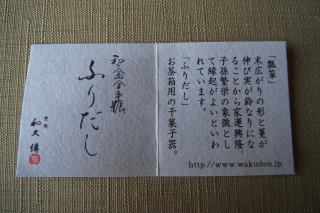 「瓢箪」
末広がりの形と蔓が
伸び実が鈴なりにな
ることから家運興隆、
子孫繁栄の象徴とし
て縁起がよいといわ
れています。
「ふりだし」
お茶箱用の干菓子器。
http://www.wakuden.jp
和三盆金平糖
ふりだし
京都
和久傳